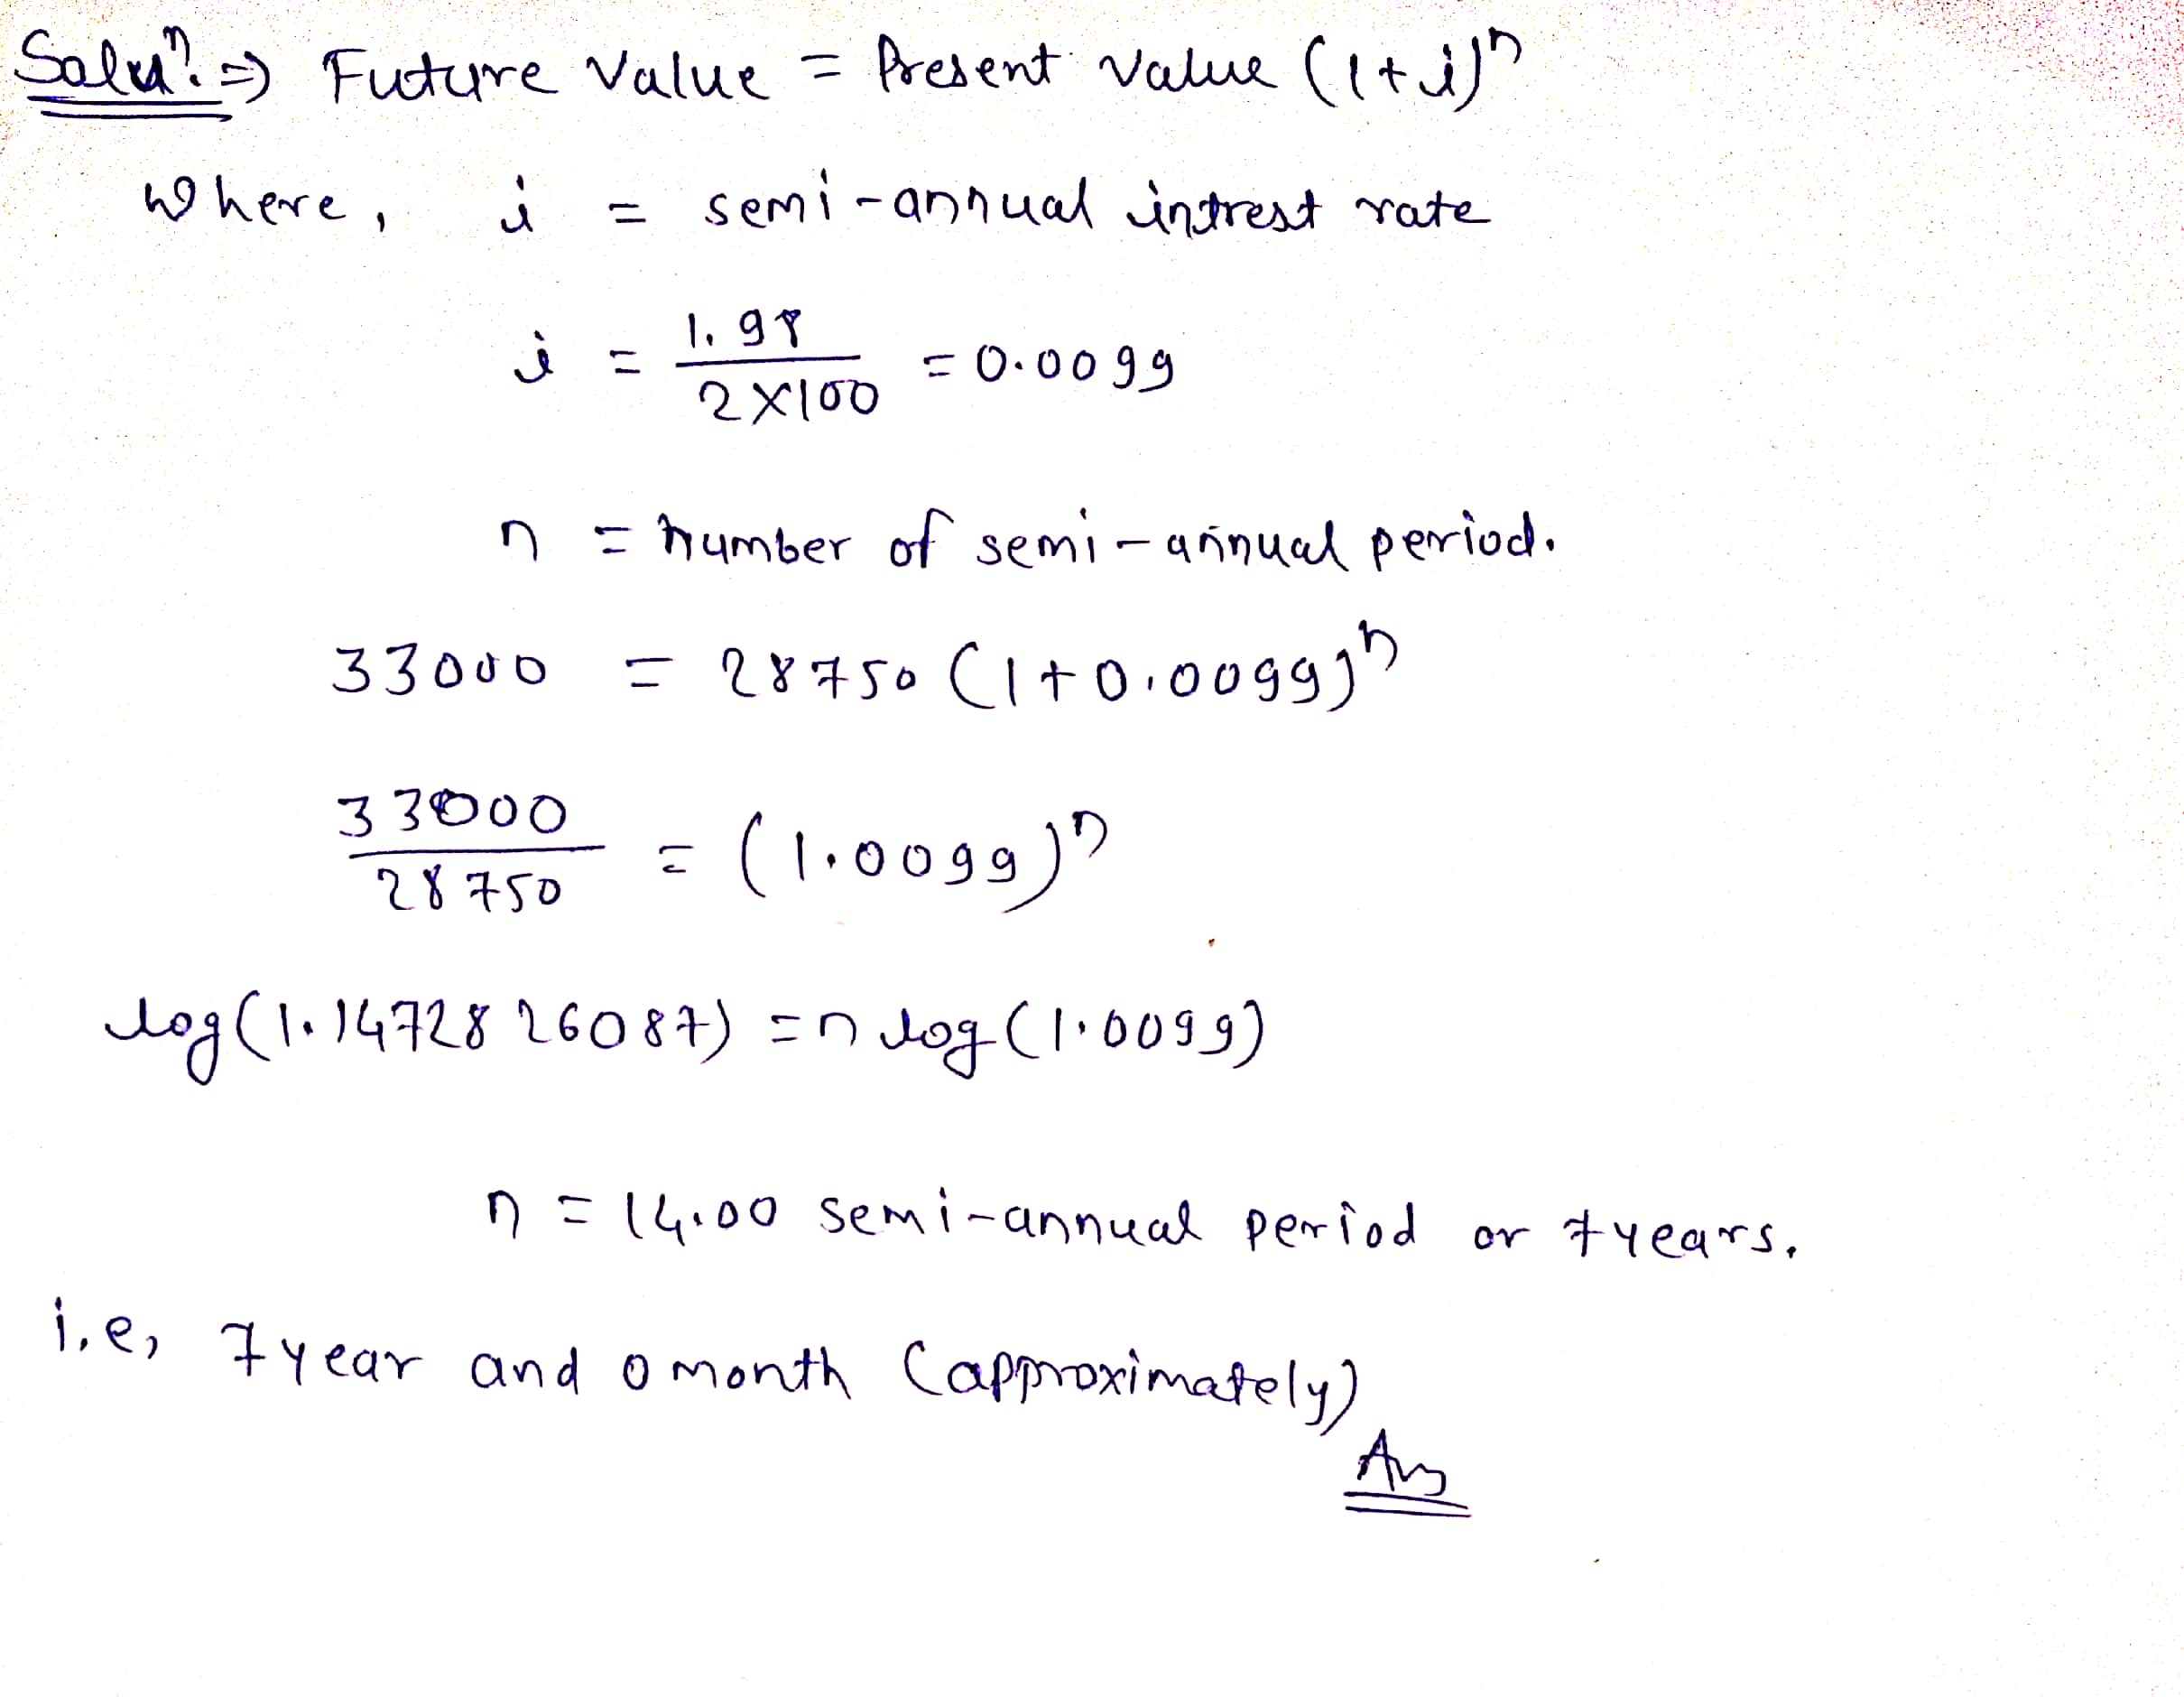 Solun. ⇒ Future Value = Present Value (1+i)^n
Where, i = semi-annual intrest rate
i = 1.98 / 2×100 = 0.0099
n = number of semi-annual period.
33000 = 28750 (1+0.0099)^n
33000 / 28750 = (1.0099)^n
log(1.1472826087) = n log(1.0099)
n = 14.00 semi-annual period or 7years.
i.e, 7year and 0 month (approximately)
Ans